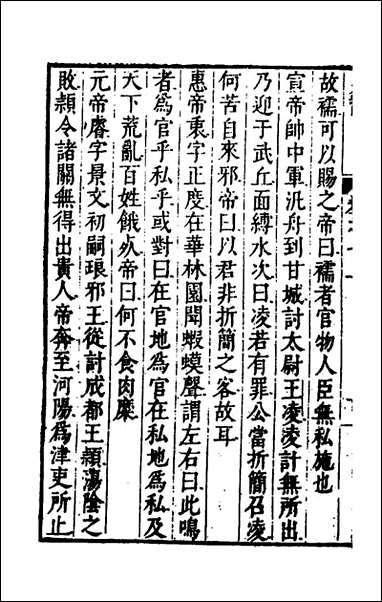 故襦可以賜之帝曰襦者官物人臣無私施也
宣帝帥中軍汎舟到甘城討太尉王凌凌計無所出
乃迎于武丘面縛水次曰凌若有罪公當折簡召凌
何苦自來邪帝曰以君非折簡之客故耳
惠帝衷字正度在華林園聞蝦蟆聲謂左右曰此鳴
者爲官乎私乎或對曰在官地爲官在私地爲私及
天下荒亂百姓餓死帝曰何不食肉糜
元帝睿字景文初嗣琅邪王從討成都王穎蕩陰之
敗穎令諸關無得出貴人帝奔至河陽爲津吏所止